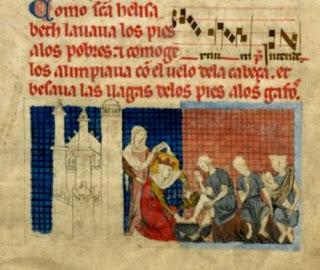 Como sc̃a helisa
beth lauaua los pies
alos pobres. ⁊ comoge
los alimpiaua cõ el uelo dela cabeça. et
besaua las llagas delos pies alos gafoᷤ.